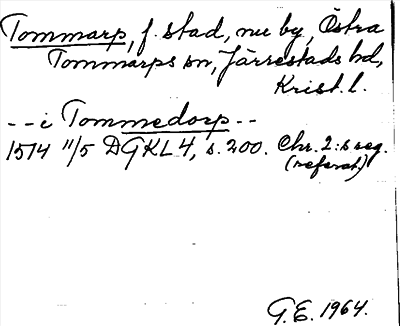 Tommarp, f. stad, nu by, Östra
Tommarps sn, Järrestads hd,
Krist. l.
-- i Tommedorp --
1514 11/5 DGKL 4, s. 200. Chr. 2:s reg.
(referat)
G.E. 1964.